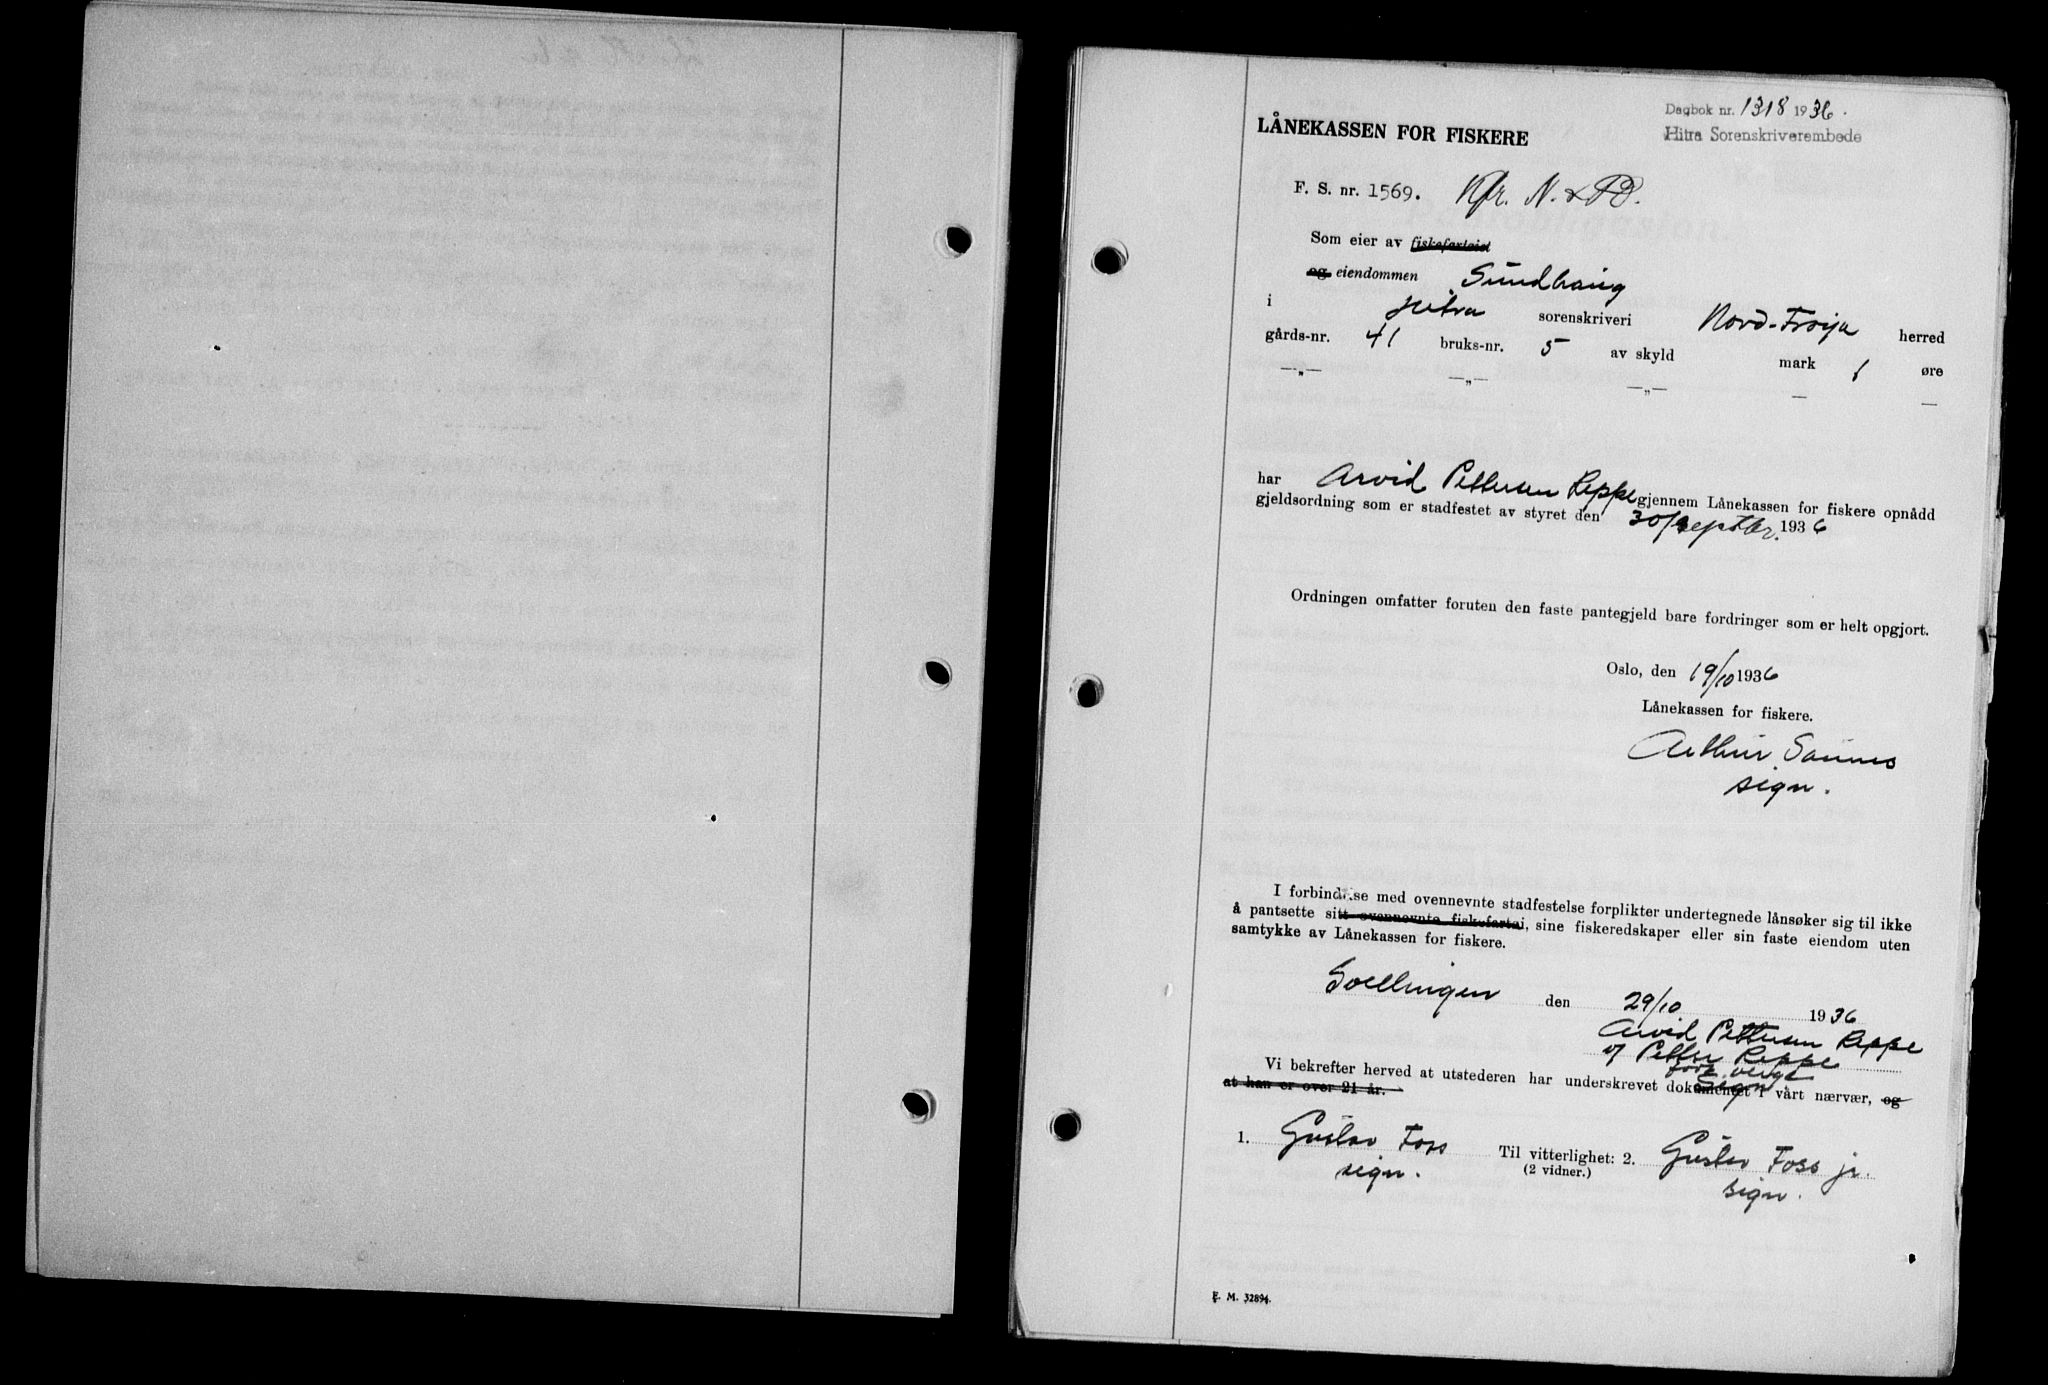 Dagbok nr. 1318 1936.
Hitra Sorenskriverembede
LÅNEKASSEN FOR FISKERE
F. S. nr. 1569. Kfr. N.
Som eier av fiskefartøiet
og eiendommen Sundhaug
i Hitra sorenskriveri Nord-Frøya herred
gårds-nr. 41 bruks-nr. 5 av skyld mark 1 øre
—„— —„— —„— — —
har Arvid Pettersen Reppe gjennem Lånekassen for fiskere opnådd
gjeldsordning som er stadfestet av styret den 30/septbr. 1936
Ordningen omfatter foruten den faste pantegjeld bare fordringer som er helt opgjort.
Oslo, den 19/10 1936
Lånekassen for fiskere.
Arthur Sannes
sign.
I forbindelse med ovennevnte stadfestelse forplikter undertegnede lånsøker sig til ikke
å pantsette sitt ovennevnte fiskefartøi, sine fiskeredskaper eller sin faste eiendom uten
samtykke av Lånekassen for fiskere.
Svellingen den 29/10 1936
Arvid Pettersen Reppe
v/ Petter Reppe
verge
sign
Vi bekrefter herved at utstederen har underskrevet dokumentet i vårt nærvær, og
at han er over 21 år.
1. Gustav Foss Til vitterlighet: 2. Gustav Foss jr.
sign. (2 vidner.) sign.
E. M. 32894.